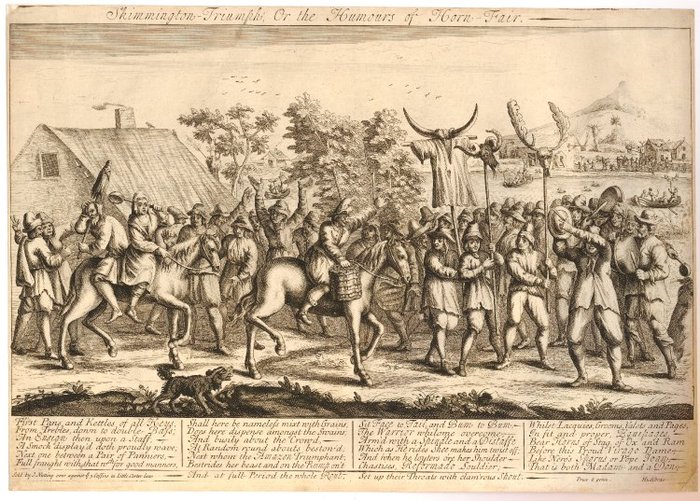 Skimmington-Triumph, Or the Humours of Horn-Fair.
First Pans, and Kettles of all Keyes,
From Trebles down to double Bass;
An Ensign then upon a Staff,
A Smock display'd doth proudly wave;
Next one between a Pair of Panniers,
Full fraught with that wch for good manners,
Shall here be nameless mixt with Grains,
Doys here dispense amongst the Swains;
And busily about the Crowd
At Random round abouts bestow'd
Next whom the Amazon Triumphant;
Bestrides her beast and on the Rump on't
And at full Period the whole Rout;
Sat Face to Tail, and Bum to Bum
The Warrior whilome overcome;
Arm'd with a Spindle and a Distaffe
Which as She rides She makes him twist off;
And when he loyters o're her Shoulder
Chastises Reformado Souldier;
Set up their Throats with clam'rous Shout.
Whilst Lacquies, Grooms, Valets and Pages,
In fit and proper Equipages
Bear Horns of Stag, of Ox and Ram
Before this Proud Virago Dame
Like Nero's Sporus or Pope Joan
That is both Madam and a Don
Sold by J. Nutting over against y
in Little Carter lane
Price 6 pence
Hudibras